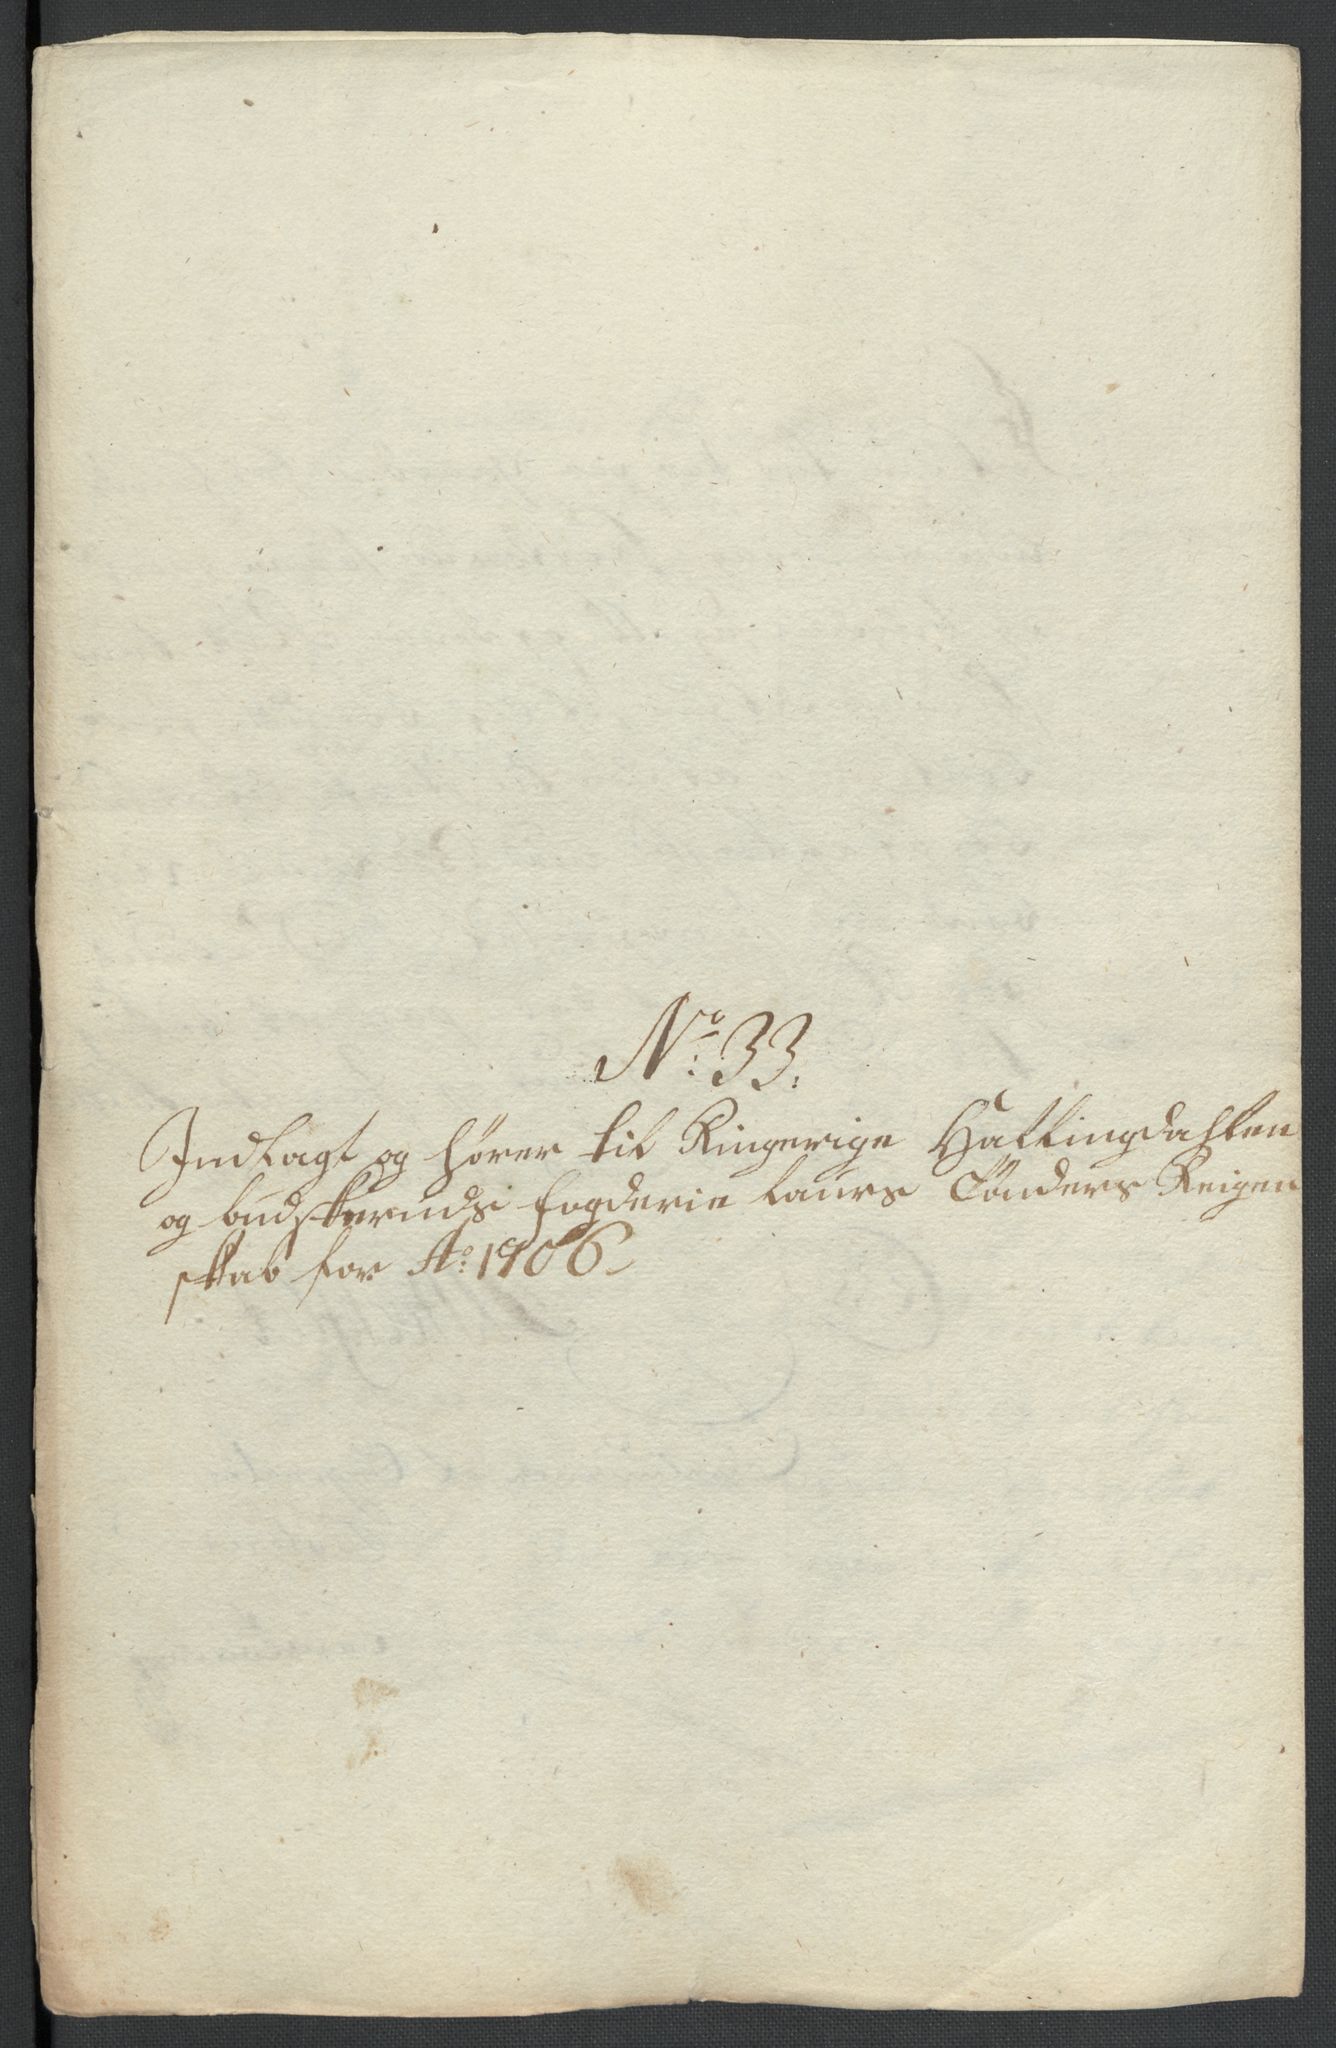 No: 33:
Indlagt og hører til Ringerige Hallingdahlen
og budskeruds fogderie Laurs Tønders Reigen
skab for Ao: 1706